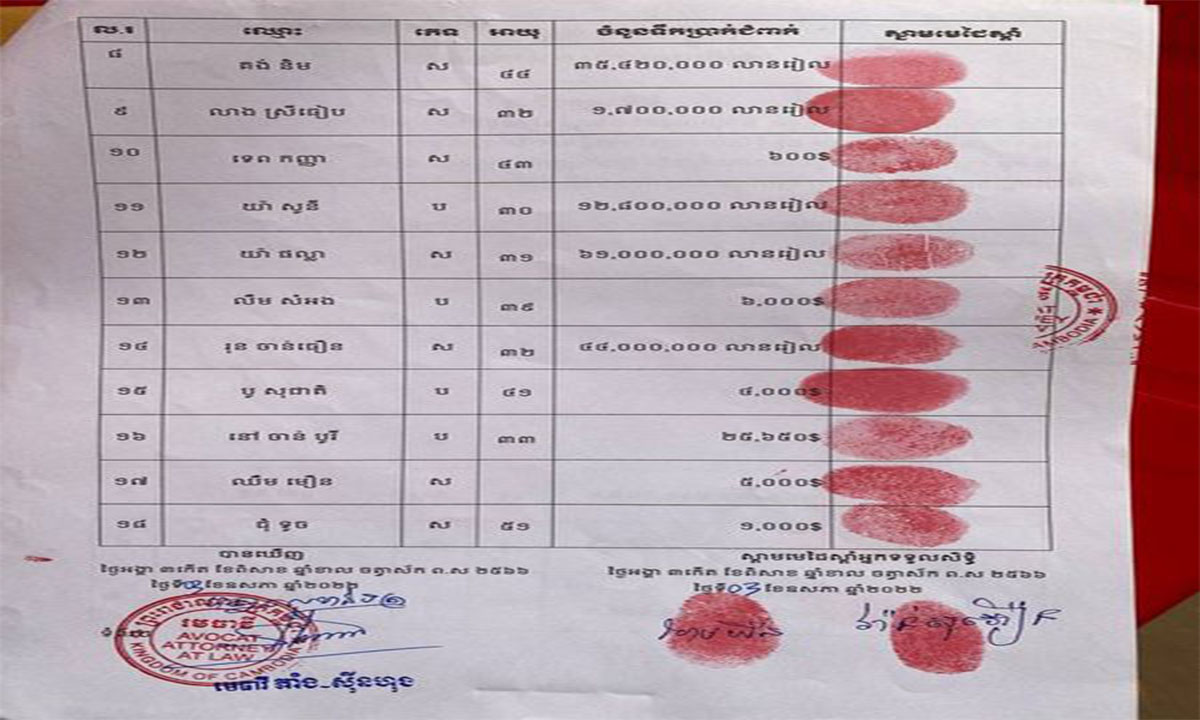 ល.រ ឈ្មោះ ភេទ អាយុ ចំនួនទឹកប្រាក់ជំពាក់ ស្នាមមេដៃស្តាំ
៨ គង់ និម ស ៤៤ ៣៥,៤២០,០០០ លានរៀល
៩ លាង ស្រីធៀប ស ៣២ ១,៧០០,០០០ លានរៀល
១០ ទេព កញ្ញា ស ៤៣ ៦០០$
១១ យ៉ា សូនី ប ៣០ ១២,៨០០,០០០ លានរៀល
១២ យ៉ា ផល្លា ស ៣១ ៦១,០០០,០០០ លានរៀល
១៣ លឹម សំអង ប ៣៩ ៦,០០០$
១៤ រុន ចាន់ធឿន ស ៣២ ៤៤,០០០,០០០ លានរៀល
១៥ ប៊ូ សុជាតិ ប ៤១ ៤,០០០$
១៦ នៅ ចាន់ បូរី ប ៣៣ ២៥,៦៥០$
១៧ ឈឹម មឿន ស ៥,០០០$
១៨ ជុំ ទូច ស ៥១ ១,០០០$
បានឃើញ ស្នាមមេដៃស្តាំអ្នកទទួលសិទ្ធិ
ថ្ងៃអង្គារ ៣កើត ខែពិសាខ ឆ្នាំខាល ចត្វាស័ក ព.ស ២៥៦៦ ថ្ងៃអង្គារ ៣កើត ខែពិសាខ ឆ្នាំខាល ចត្វាស័ក ព.ស ២៥៦៦
ថ្ងៃទី 03 ខែឧសភា ឆ្នាំ២០២២ ថ្ងៃទី 03 ខែឧសភា ឆ្នាំ២០២២
មេធាវី
AVOCAT
ATTORNEY
AT LAW
KINGDOM OF CAMBODIA
មេធាវី តាំង-ស៊ីនហុង